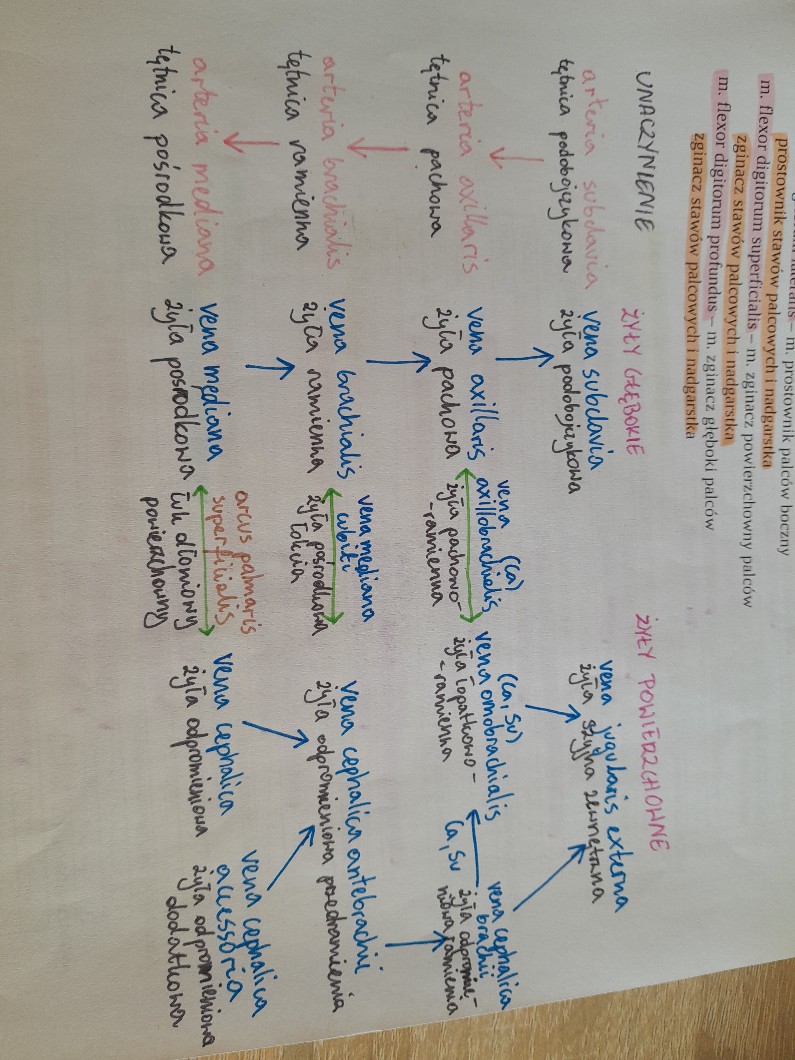 lateralis – m. prostownik palców boczny
prostownik stawów palcowych i nadgarstka
m. flexor digitorum superficialis – m. zginacz powierzchowny palców
zginacz stawów palcowych i nadgarstka
m. flexor digitorum profundus – m. zginacz głęboki palców
zginacz stawów palcowych i nadgarstka
UNACZYNIENIE
ŻYŁY GŁĘBOKIE
ŻYŁY POWIERZCHOWNE
arteria subclavia
tętnica podobojczykowa
vena subclavia
żyła podobojczykowa
vena jugularis externa
żyła szyjna zewnętrzna
arteria axillaris
tętnica pachowa
vena axillaris
żyła pachowa
vena (Ca)
axillobrachialis
żyła pachowo-
-ramienna
(Ca, Su)
vena omobrachialis
żyła łopatkowo-
-ramienna
Ca, Su
vena cephalica
brachii
żyła odpromie-
niowa ramienia
arteria brachialis
tętnica ramienna
vena brachialis
żyła ramienna
vena mediana
cubiti
żyła pośrodkowa
łokcia
vena cephalica antebrachii
żyła odpromieniowa przedramienia
arteria mediana
tętnica pośrodkowa
vena mediana
żyła pośrodkowa
arcus palmaris
superfilialis
łuk dłoniowy
powierzchowny
vena cephalica
żyła odpromieniowa
vena cephalica
accessoria
żyła odpromieniowa
dodatkowa